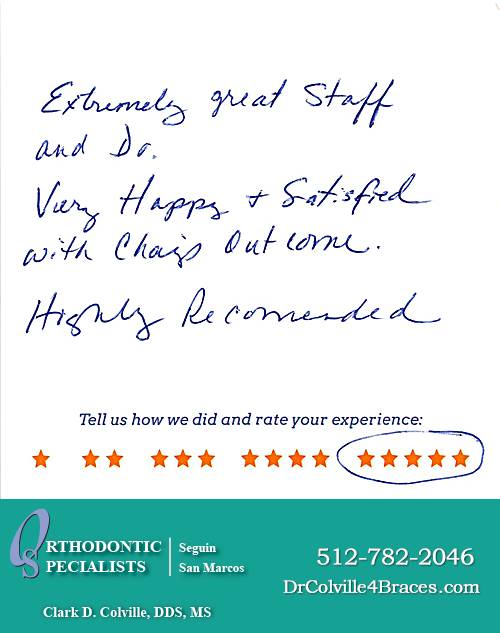 Extremely great Staff
and Dr.
Very Happy + Satisfied
with Outcome.
Highly Recomended
Tell us how we did and rate your experience:
ORTHODONTIC
SPECIALISTS
Seguin
San Marcos
512-782-2046
DrColville4Braces.com
Clark D. Colville, DDS, MS